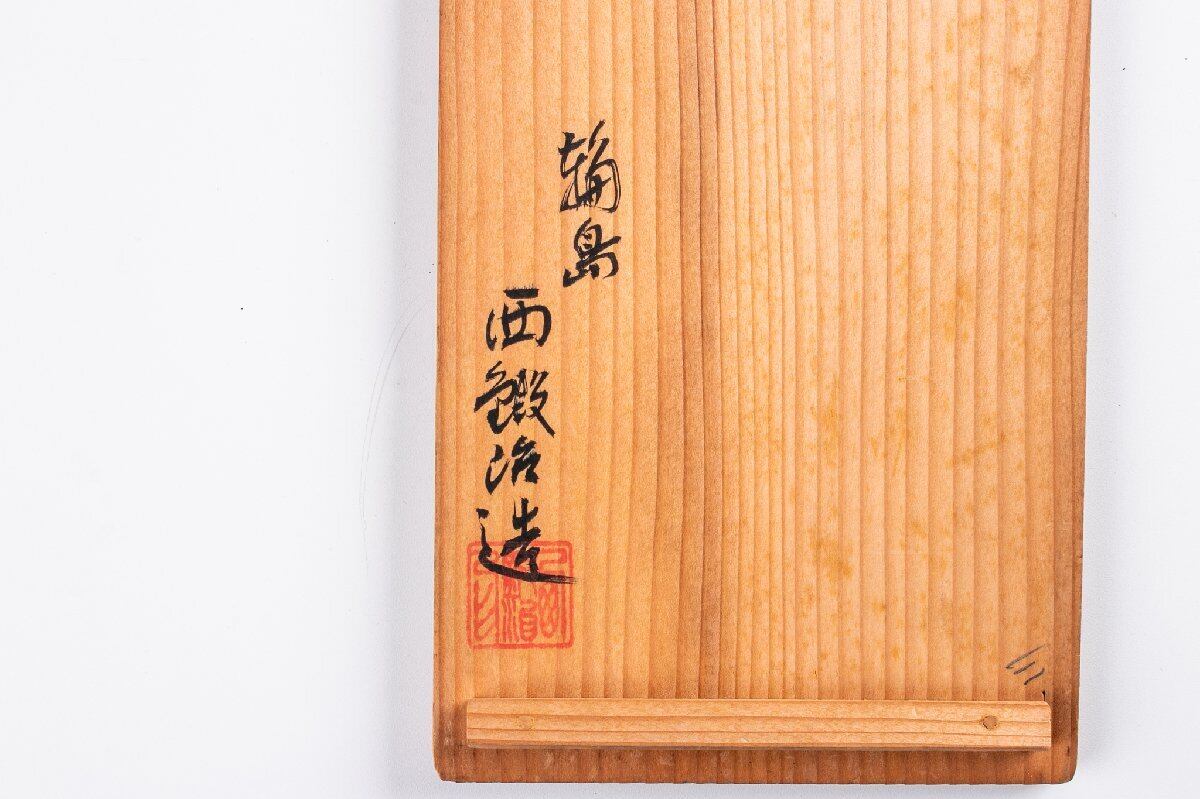 輪島
西鍛治造